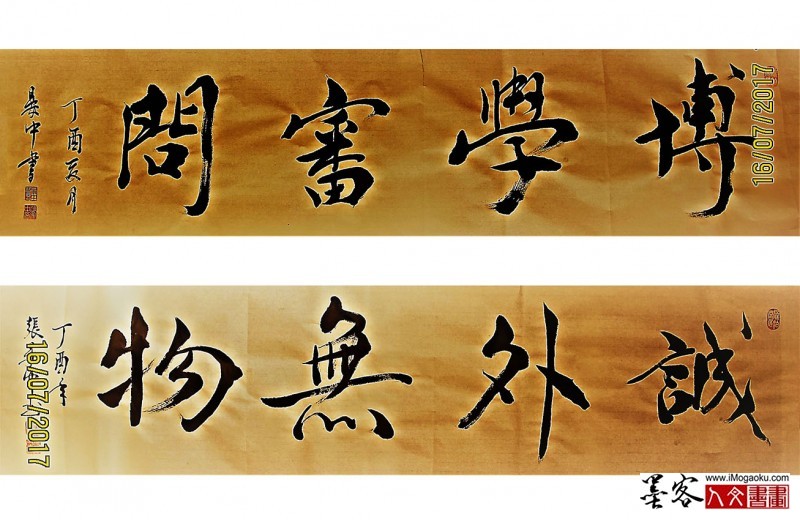 博學審問
丁酉夏月
16/07/2017
誠外無物
丁酉年
張
16/07/2017
www.iMogaoku.com
墨客
人文書畫